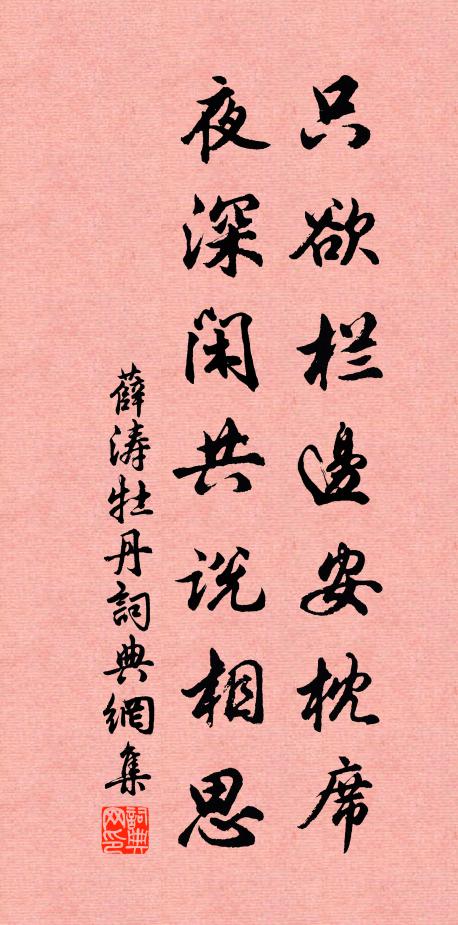 只欲栏邊安枕席
夜深闲共说相思
薛涛牡丹詞典網集
詞典网印